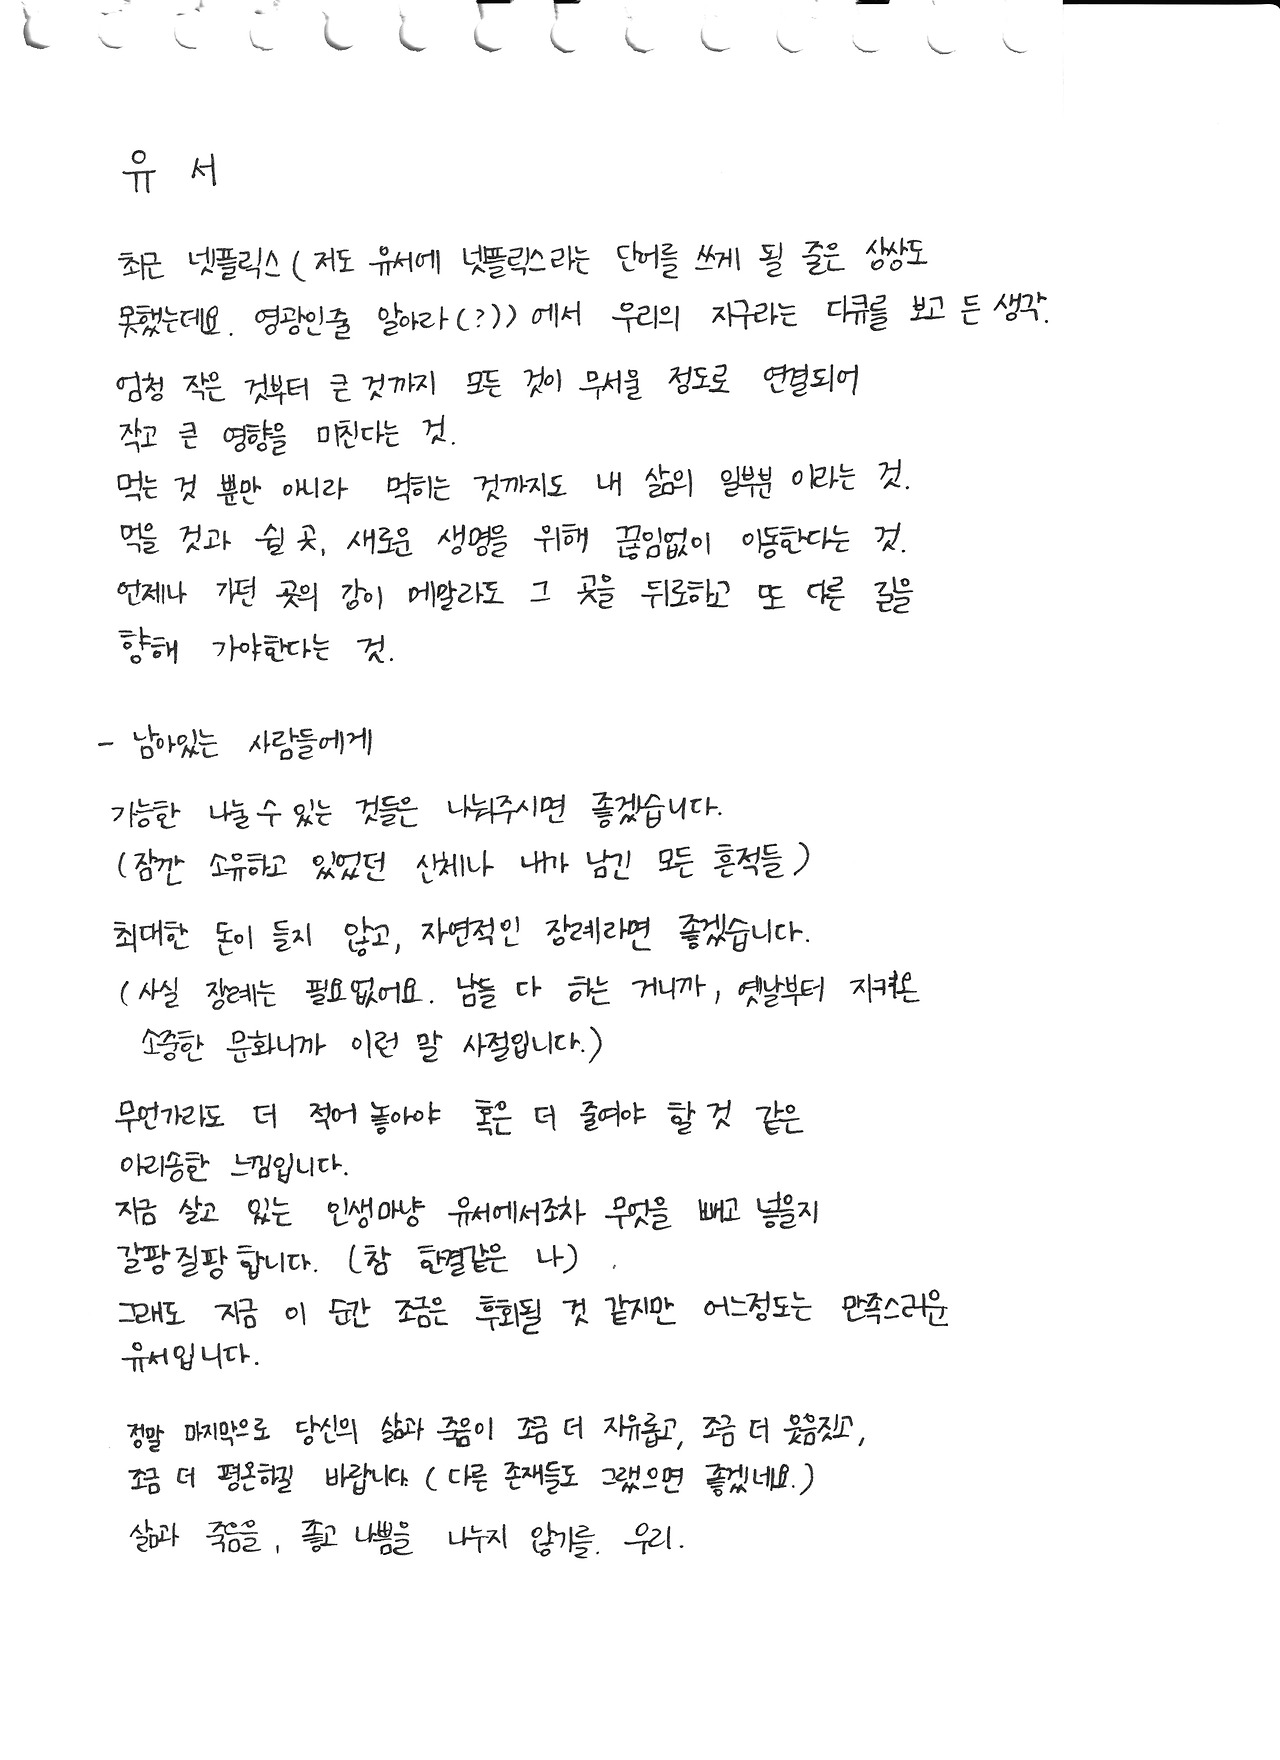 유 서
최근 넷플릭스 ( 저도 유서에 넷플릭스라는 단어를 쓰게 될 줄은 상상도
못했는데요. 영광인줄 알아라 (?)) 에서 우리의 지구라는 다큐를 보고 든 생각.
엄청 작은 것부터 큰 것까지 모든 것이 무서울 정도로 연결되어
작고 큰 영향을 미친다는 것.
먹는 것 뿐만 아니라 먹히는 것까지도 내 삶의 일부분 이라는 것.
먹을 것과 쉴 곳, 새로운 생명을 위해 끊임없이 이동한다는 것.
언제나 가던 곳의 강이 메말라도 그 곳을 뒤로하고 또 다른 길을
향해 가야한다는 것.
- 남아있는 사람들에게
가능한 나눌 수 있는 것들은 나눠주시면 좋겠습니다.
(잠깐 소유하고 있었던 신체나 내가 남긴 모든 흔적들)
최대한 돈이 들지 않고, 자연적인 장례라면 좋겠습니다.
(사실 장례는 필요없어요. 남들 다 하는 거니까, 옛날부터 지켜온
소중한 문화니까 이런 말 사절입니다.)
무언가라도 더 적어 놓아야 혹은 더 줄여야 할 것 같은
아리송한 느낌입니다.
지금 살고 있는 인생마냥 유서에서조차 무엇을 빼고 넣을지
갈팡질팡 합니다. (참 한결같은 나)
그래도 지금 이 순간 조금은 후회될 것 같지만 어느정도는 만족스러운
유서입니다.
정말 마지막으로 당신의 삶과 죽음이 조금 더 자유롭고, 조금 더 웃음짓고,
조금 더 평온하길 바랍니다. (다른 존재들도 그랬으면 좋겠네요.)
삶과 죽음을, 좋고 나쁨을 나누지 않기를. 우리.